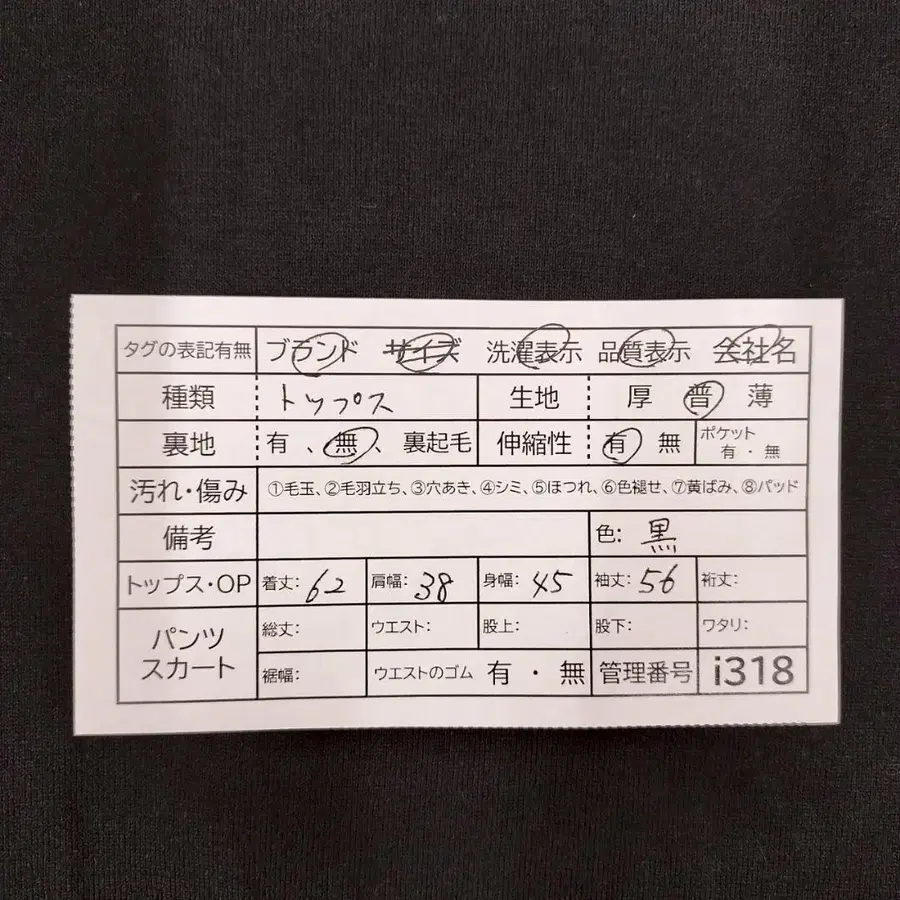 タグの表記有無 ブランド サイズ 洗濯表示 品質表示 会社名
種類 トップス 生地 厚 普 薄
裏地 有、無、裏起毛 伸縮性 有 無 ポケット 有・無
汚れ・傷み ①毛玉、②毛羽立ち、③穴あき、④シミ、⑤ほつれ、⑥色褪せ、⑦黄ばみ、⑧パッド
備考 色: 黒
トップス・OP 着丈: 62 肩幅: 38 身幅: 45 袖丈: 56 裄丈:
パンツ スカート 総丈: ウエスト: 股上: 股下: ワタリ:
裾幅: ウエストのゴム 有・無 管理番号 i318